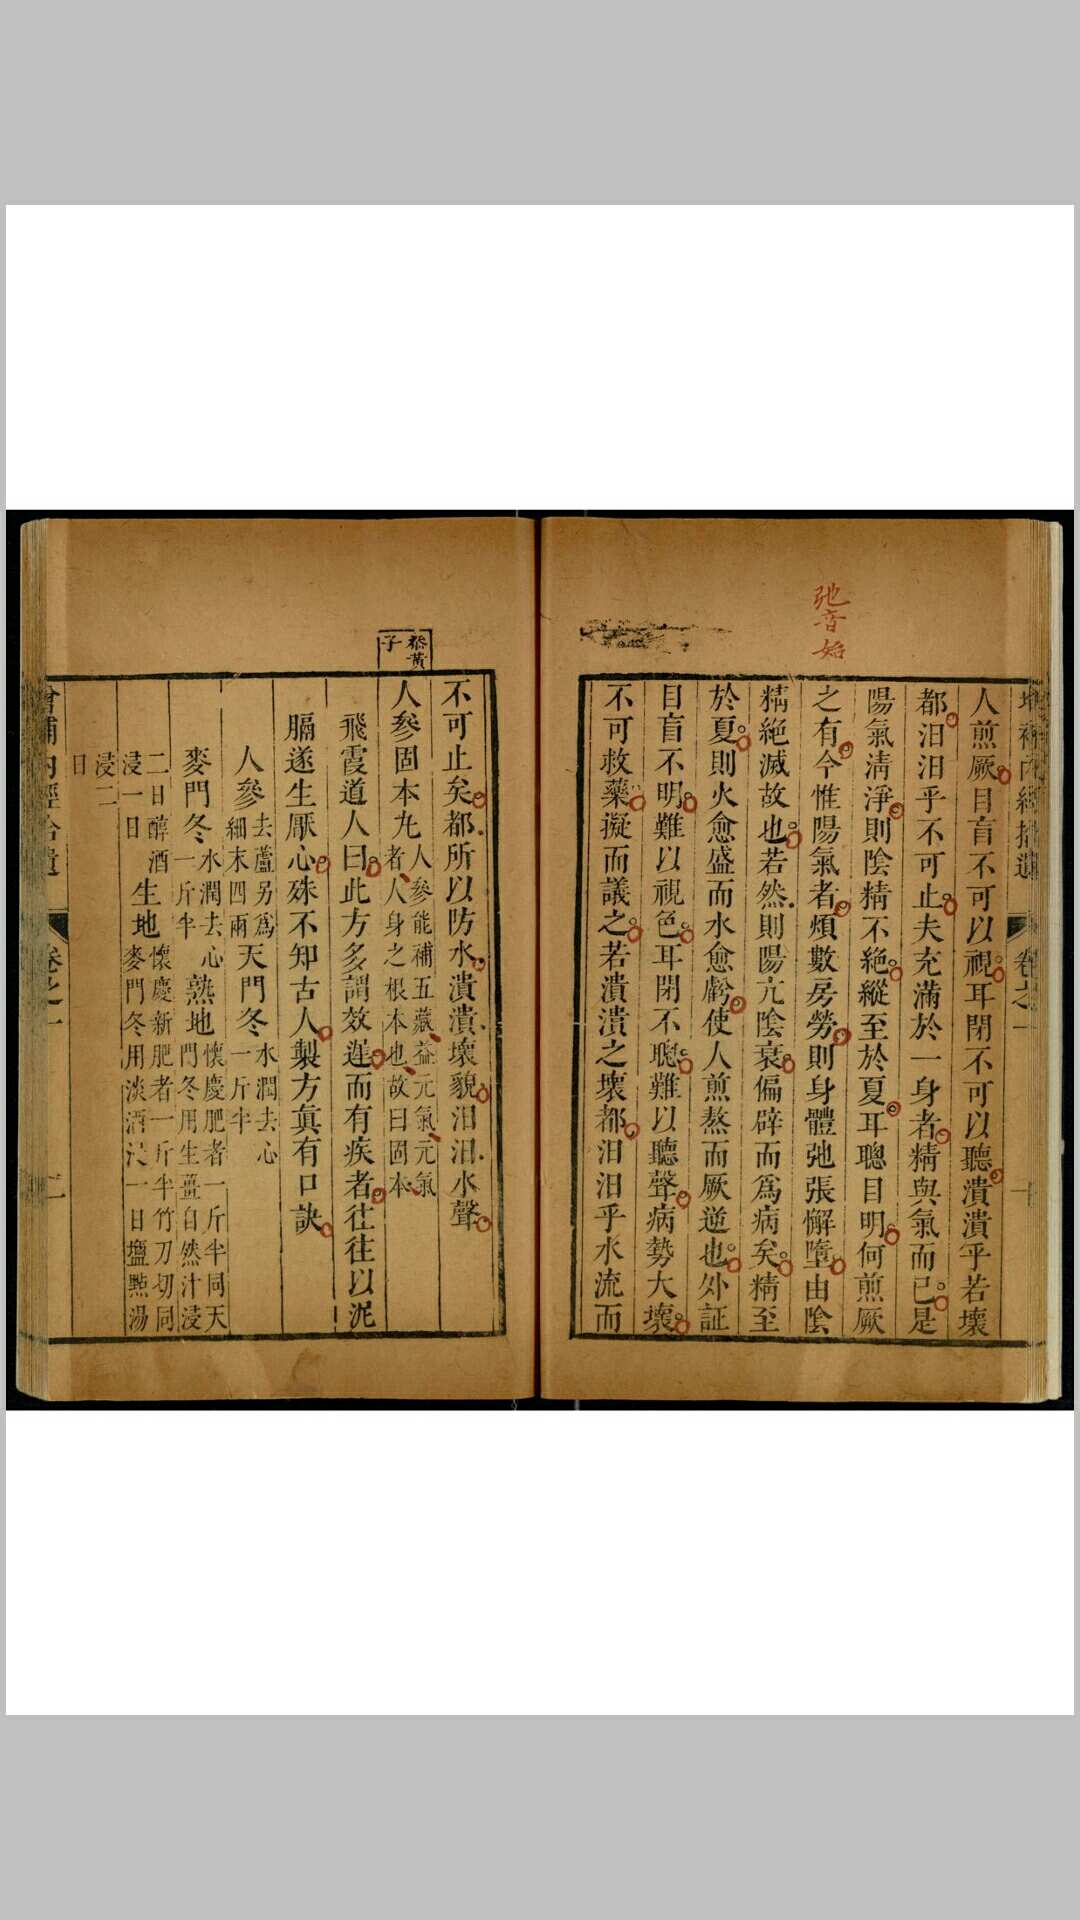 弛音始
人煎厥目盲不可以視耳閉不可以聽潰潰乎若壞
都汨汨乎不可止夫充滿於一身者精與氣而已是
陽氣清淨則陰精不絶縱至於夏耳聰目明何煎厥
之有今惟陽氣者煩數房勞則身體弛張懈墮由陰
精絶滅故也若然則陽亢陰衰偏辟而爲病矣精至
於夏則火愈盛而水愈虧使人煎熬而厥逆也外証
目盲不明難以視色耳閉不聰難以聽聲病勢大壞
不可救藥凝而議之若潰潰之壞都汨汨乎水流而
不可止矣都所以防水潰潰壞貌汨汨水聲
叅黃
子
人參固本丸
人參能補五藏益元氣元氣
者人身之根本也故曰固本
飛霞道人曰此方多謂效遲而有疾者往往以泥
膈遂生厭心殊不知古人製方眞有口訣
人參
去蘆另爲
細末四兩
天門冬
水潤去心
一斤半
麥門冬
水潤去心
一斤半
熟地
懷慶肥者一斤半同天
門冬用生薑自然汁浸
二日醇酒
浸一日
生地
懷慶新肥者一斤半竹刀切同
麥門冬用淡酒浸一日鹽㸃湯
浸二
日
卷之一
二